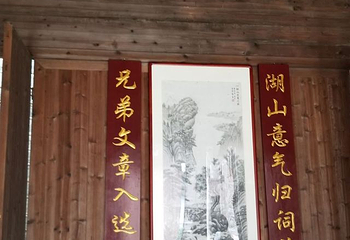 湖山意气归词
兄弟文章入选